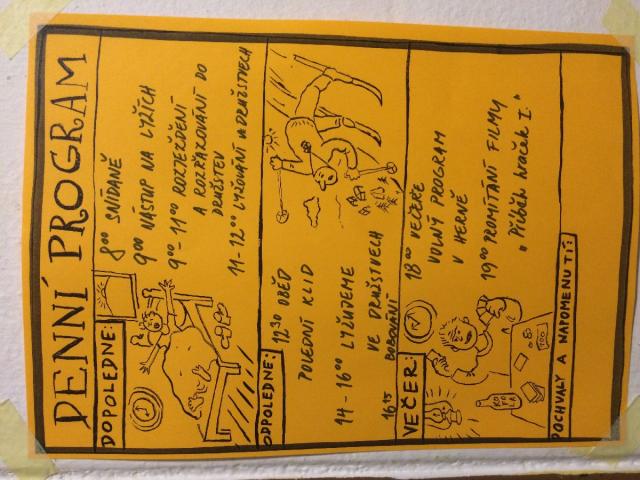 DENNÍ PROGRAM
DOPOLEDNE:
8⁰⁰ SNÍDANĚ
9⁰⁰ NÁSTUP NA LYŽÍCH
9⁰⁰-11⁰⁰ ROZJEŽDĚNÍ
A ROZŘAZOVÁNÍ DO
DRUŽSTEV
11-12⁰⁰ LYŽOVÁNÍ V DRUŽSTVECH
ODPOLEDNE:
12³⁰ OBĚD
POLEDNÍ KLID
14-16⁰⁰ LYŽUJEME
VE DRUŽSTVECH
16¹⁵ BOBOVÁNÍ
VEČER:
18⁰⁰ VEČEŘE
VOLNÝ PROGRAM
V HERNĚ
19⁰⁰ PROMÍTÁNÍ FILMY
"Příběh hraček I."
KOFOLA
POCHVALY A NAPOMENUTÍ: